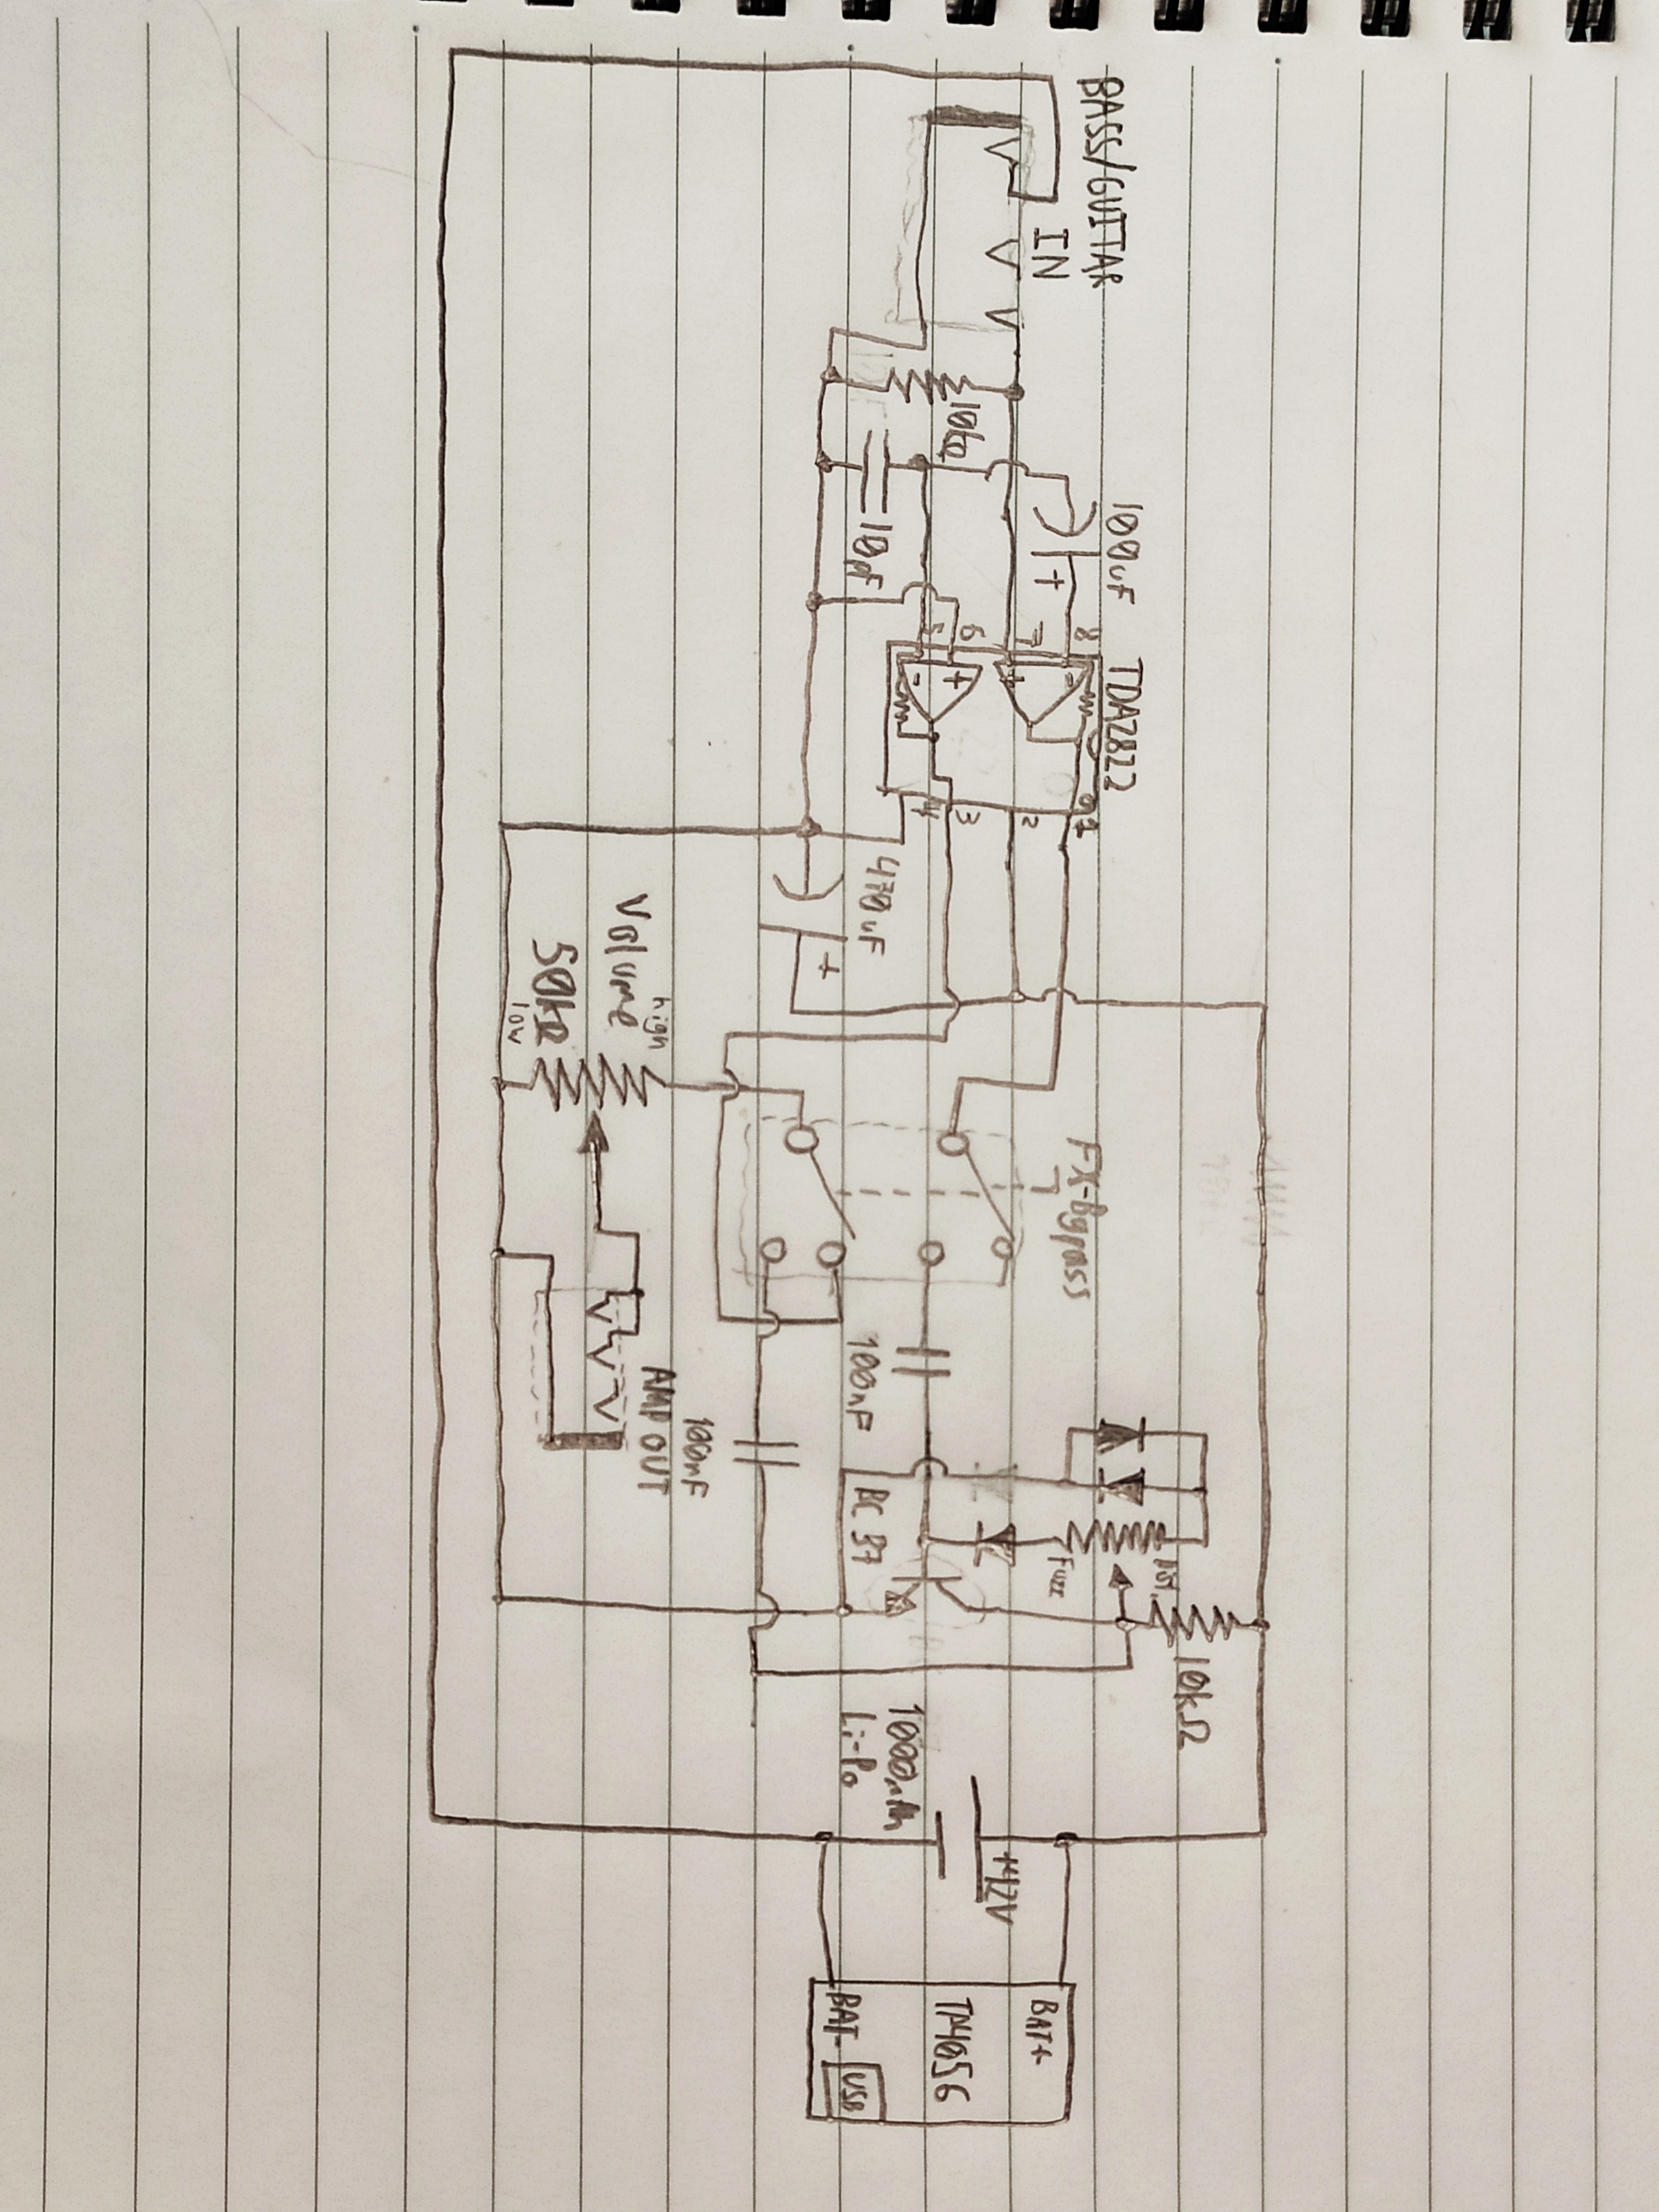 BASS/GUITAR
IN
10kΩ
100uF
10pF
TDA2822
8
7
6
5
+
-
+
-
1
2
3
4
470uF
+
+
Volume
50kΩ
high
low
FX-Bypass
100nF
100nF
AMP OUT
BC 37
Fuzz
10kΩ
1000mAh
Li-Po
BAT+
TP4056
BAT-
USB